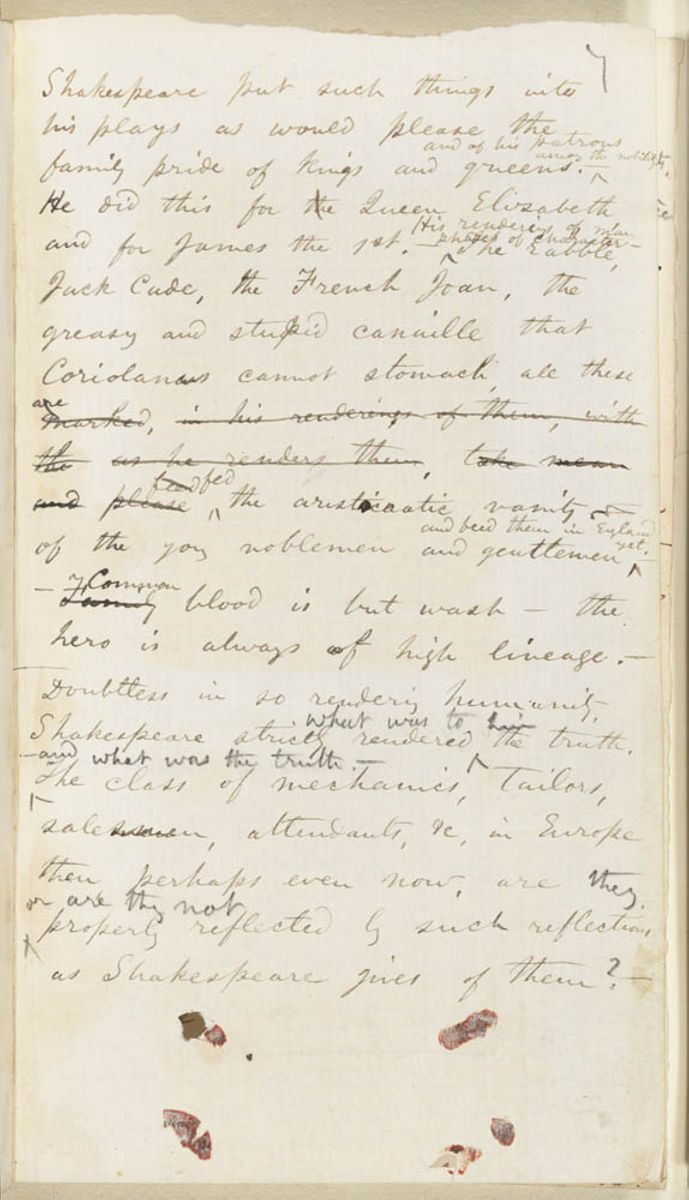 7
Shakespeare put such things into
his plays as would please the
and of his patrons
among the nobility.
family pride of kings and queens. —
He did this for the Queen Elizabeth
His rendering of man
phases of character —
and for James the 1st. — The rabble,
Jack Cade, the French Joan, the
greasy and stupid canaille that
Coriolanus cannot stomach, all these
are
marked, in his renderings of them, with
the as he renders them, take mean
feed fed
and please the aristocratic vanity
and feed them in England
yet.
of the young noblemen and gentlemen —
— Common
Family blood is but wash — the
hero is always of high lineage. —
Doubtless in so rendering humanity,
what was to him
Shakespeare strictly rendered the truth,
— and what was the truth. —
The class of mechanics, tailors,
salesmen, attendants, &c, in Europe
then perhaps even now, are they
or are they not
properly reflected by such reflections
as Shakespeare gives of them? —